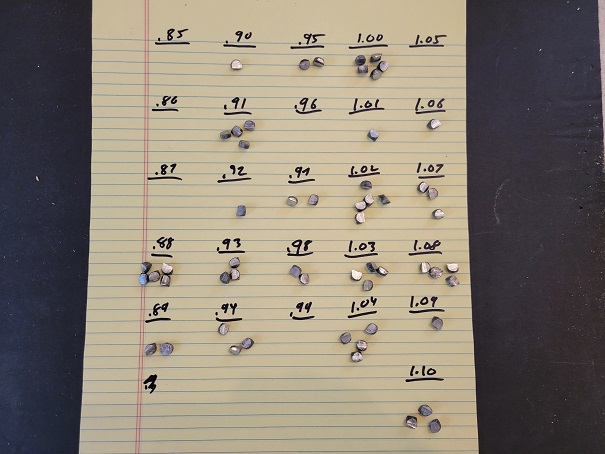 .85 .90 .95 1.00 1.05
.86 .91 .96 1.01 1.06
.87 .92 .97 1.02 1.07
.88 .93 .98 1.03 1.08
.89 .94 .99 1.04 1.09
1.10